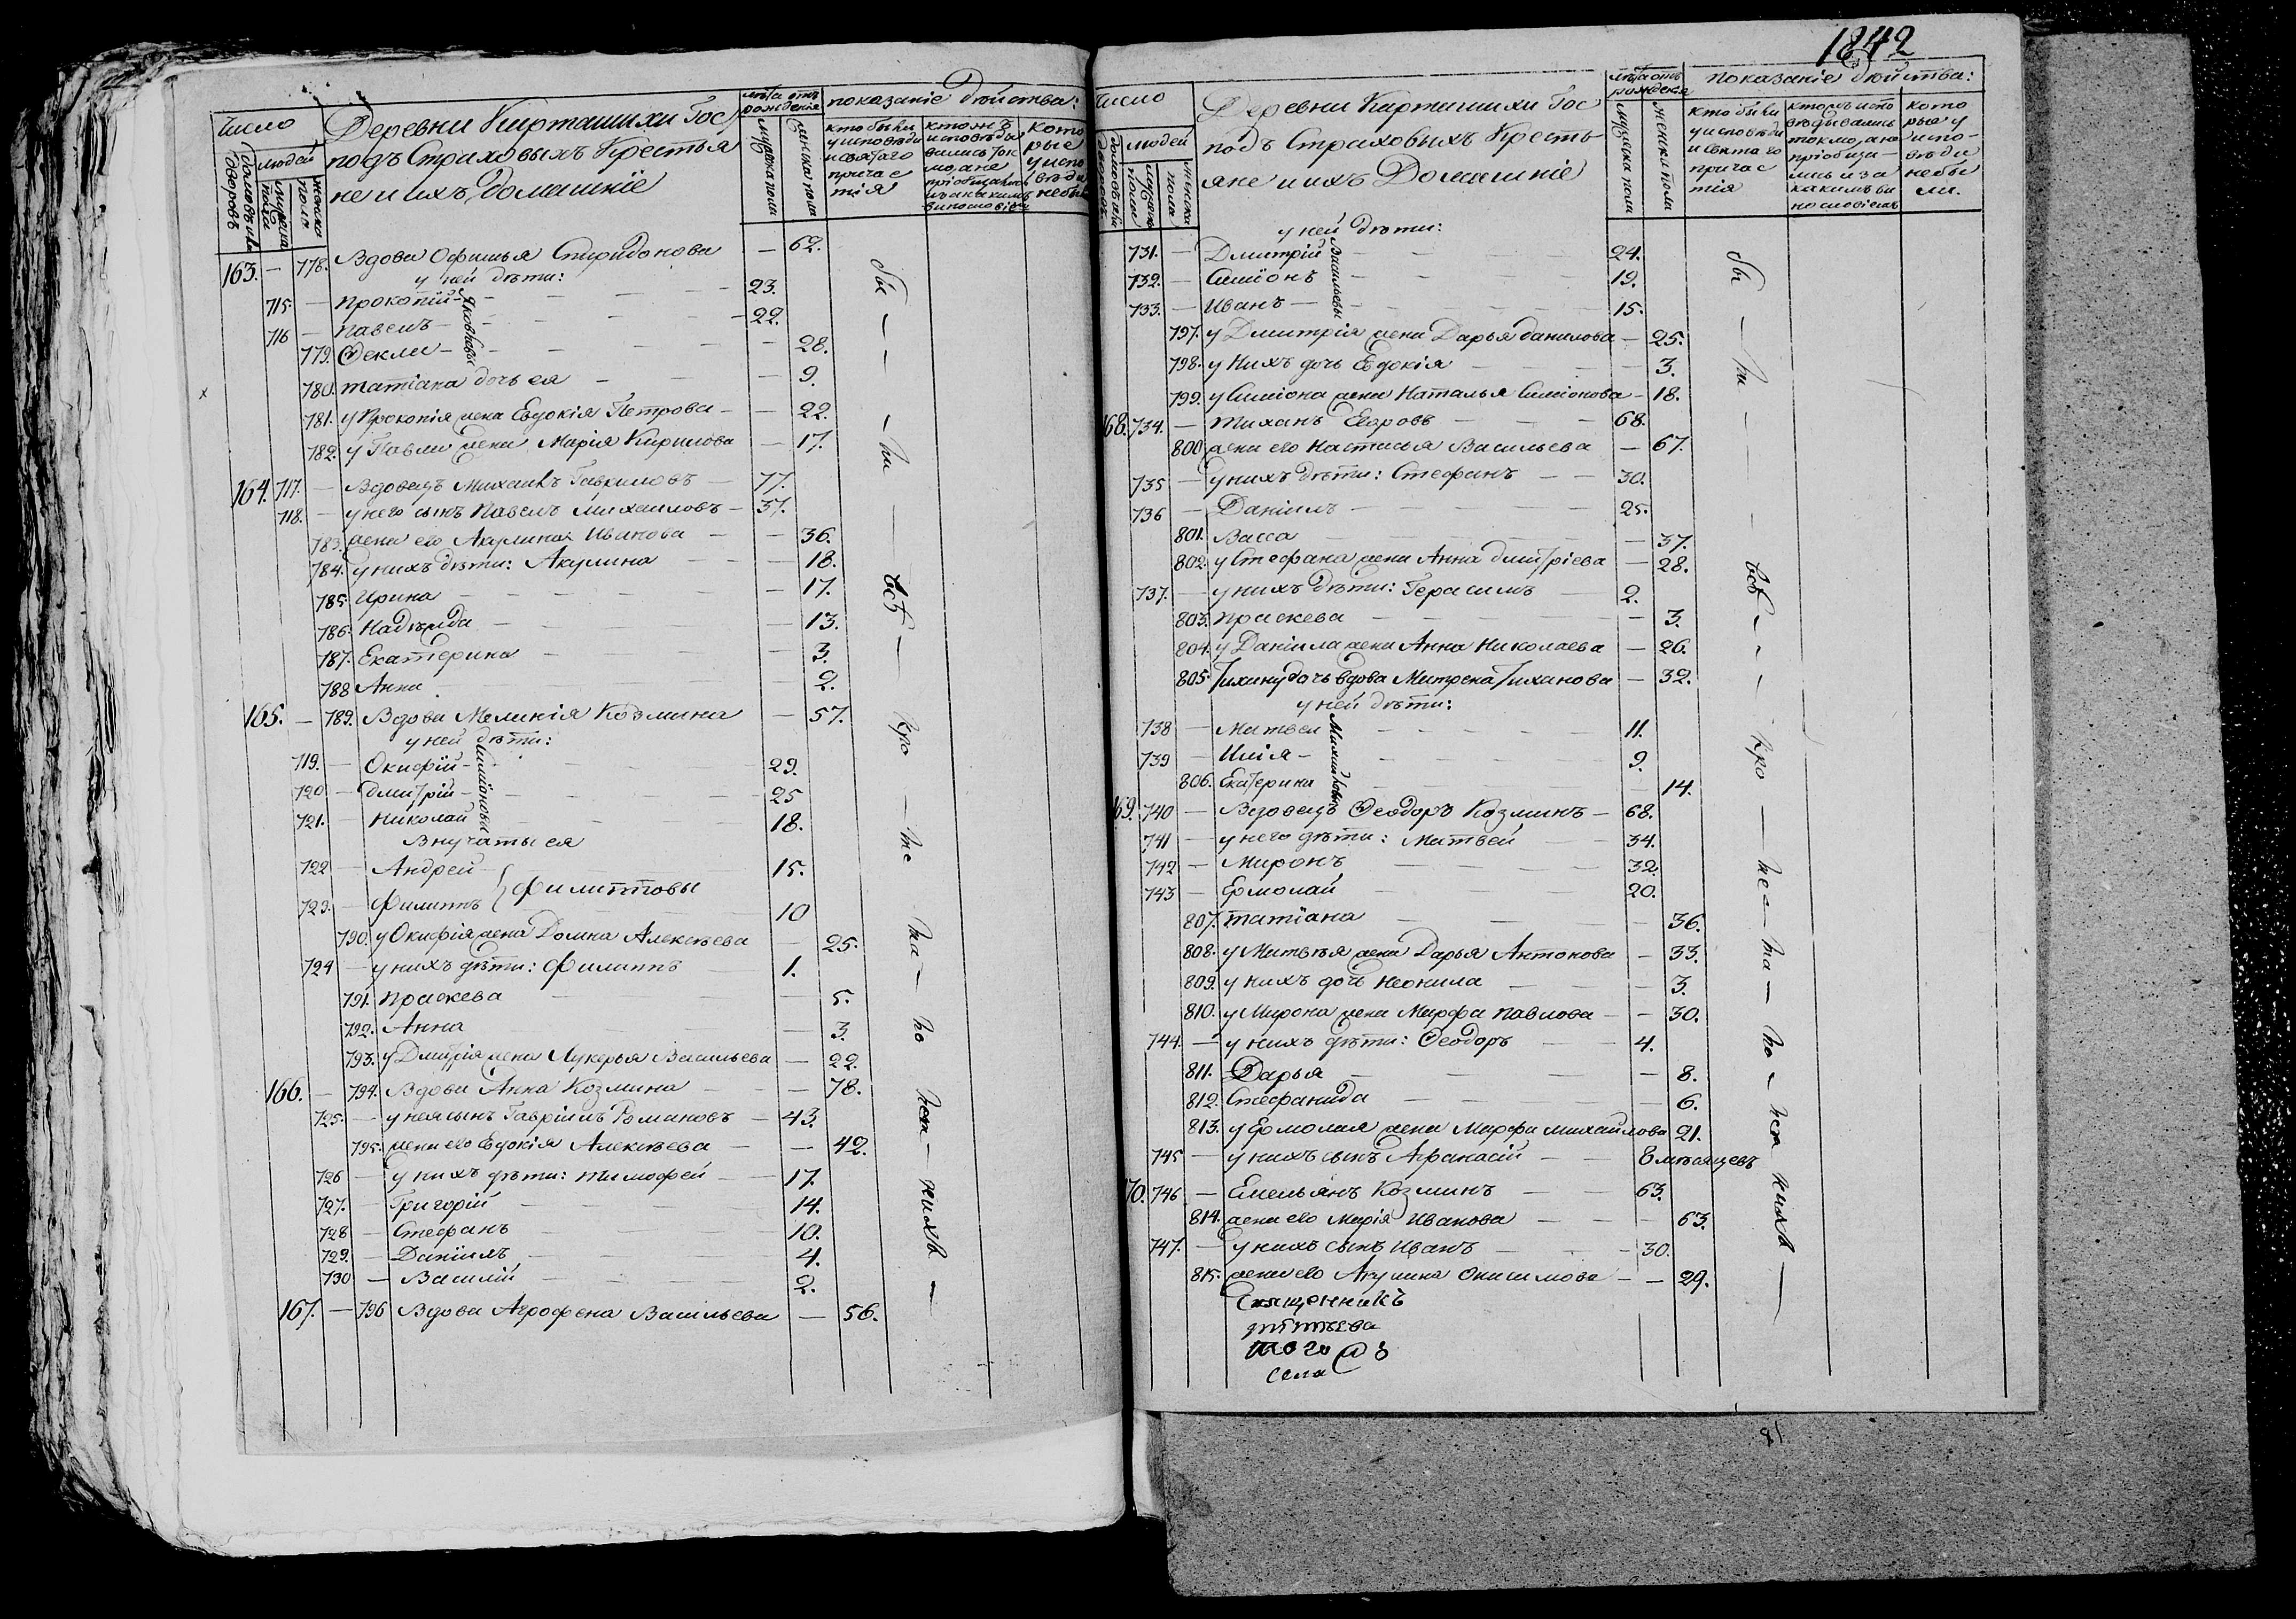 1842
Число
Деревни Карташихи Гос
лѣта отъ рожденія
показаніе дѣйства:
подъ Страховыхъ Крестья
не и ихъ домашніе
людей
мужеска пола
женска пола
мужеска пола
женска пола
кто были у исповѣди и святаго причастія
кото рые у испо вѣди небы
163. — 778. Вдова Офимья Спиридонова — 62.
у ней дѣти:
715. — Прокопій — 23.
716 — Павелъ — 22.
Яковлевы
779. Ѳекла — 28.
780. татіана дочь ея — 9.
781. у Прокопія жена Евдокія Петрова — 22.
782. у Павла жена Марія Кирилова — 17.
164. 717. — Вдовецъ Михаилъ Гавриловъ — 77.
718. — у него сынъ Павелъ Михаиловъ — 37.
783. жена его Акулина Иванова — 36.
784. у нихъ дѣти: Акулина — 18.
785. Ирина — 17.
786. Надежда — 13.
787. Екатерина — 3.
788 Анна — 2.
165. — 789. Вдова Меланія Козмина — 57.
у ней дѣти:
719. — Окифій — 29.
720 — дмитрій — 25
721. — Николай — 18.
Симіоновы
Внучаты ея
722 — Андрей — 15.
723. — Филиппъ — 10
Филипповы
790. у Окифія жена Домна Алексѣева — 25.
724 — у нихъ дѣти: Филиппъ — 1.
791. Праскева — 5.
792. Анна — 3.
793. у Дмитрія жена Лукерья Васильева — 22.
166. — 794. Вдова Анна Козмина — 78.
725. — у нея сынъ Гавріилъ Романовъ — 43.
795. жена его Евдокія Алексѣева — 42.
726 — у нихъ дѣти: тимофей — 17.
727. — Григорій — 14.
728 — Стефанъ — 10.
729. — Даніилъ — 4.
730 — Василій — 2.
167. — 796 Вдова Агрофена Васильева — 56.
бы — ли — всѣ —
Число
Деревни Карташихи Гос
лѣта отъ рожденія
показаніе дѣйства:
подъ Страховыхъ Кресть
яне и ихъ Домашніе
людей
мужеска пола
женска пола
мужеска пола
женска пола
кто были у исповѣди и святаго причастія
кото рые у испо- вѣди небы ли.
у ней дѣти:
731. — Дмитрій — 24.
732. — Симіонъ — 19.
733. — Иванъ — 15.
Васильевы
797. у Дмитрія жена Дарья данилова — 25.
798. у нихъ дочь Евдокія — 3.
799. у Симіона жена Наталья Симіонова — 18.
168. 734. — тиханъ Егоровъ — 68.
800 жена его Настасья Васильева — 67.
735 — у нихъ дѣти: Стефанъ — 30.
736 — Даніилъ — 25.
801. Васса — 37.
802. у Стефана жена Анна дмитріева — 28.
737. — у нихъ дѣти: Герасимъ — 2.
803. Праскева — 3.
804. у Даніила жена Анна Николаева — 26.
805. Тихину дочь вдова Матрена Тиханова — 32.
у ней дѣти:
738 — Матвеи — 11.
739 — Илія — 9.
806. Екатерина — 14.
169. 740 — Вдовецъ Ѳеодоръ Козминъ — 68.
741 — у него дѣти: Матвей — 34.
742 — Миронъ — 32.
743 — Ермолай — 20.
807. татіана — 36.
808. у Матвѣя жена Дарья Антонова — 33.
809. у нихъ дочь Неонила — 3.
810. у Мирона жена Марфа Павлова — 30.
744. — у нихъ дѣти: Ѳеодоръ — 4.
811. Дарья — 8.
812. Стефанида — 6.
813. у Ермолая жена Марфа михайлова 21.
745 — у нихъ сынъ Афанасій — 8 мѣсяцевъ
170. 746 — Емельянъ Козминъ — 63.
814. жена его Марія Иванова — 63.
747. — у нихъ сынъ Иванъ — 30.
815. жена его Акулина Онисимова — 29.
бы — ли — всѣ —
Священникъ
того
села